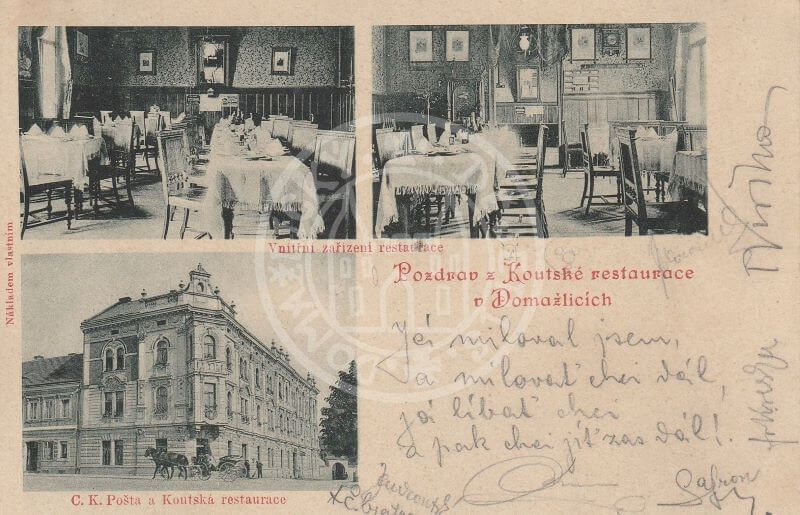 Vnitřní zařízení restaurace
Nákladem vlastním
Pozdrav z Koutské restaurace
v Domažlicích
Já miloval jsem,
a milovat chci dál,
já líbat chci
a pak chci jít zas dál!
C. K. Pošta a Koutská restaurace